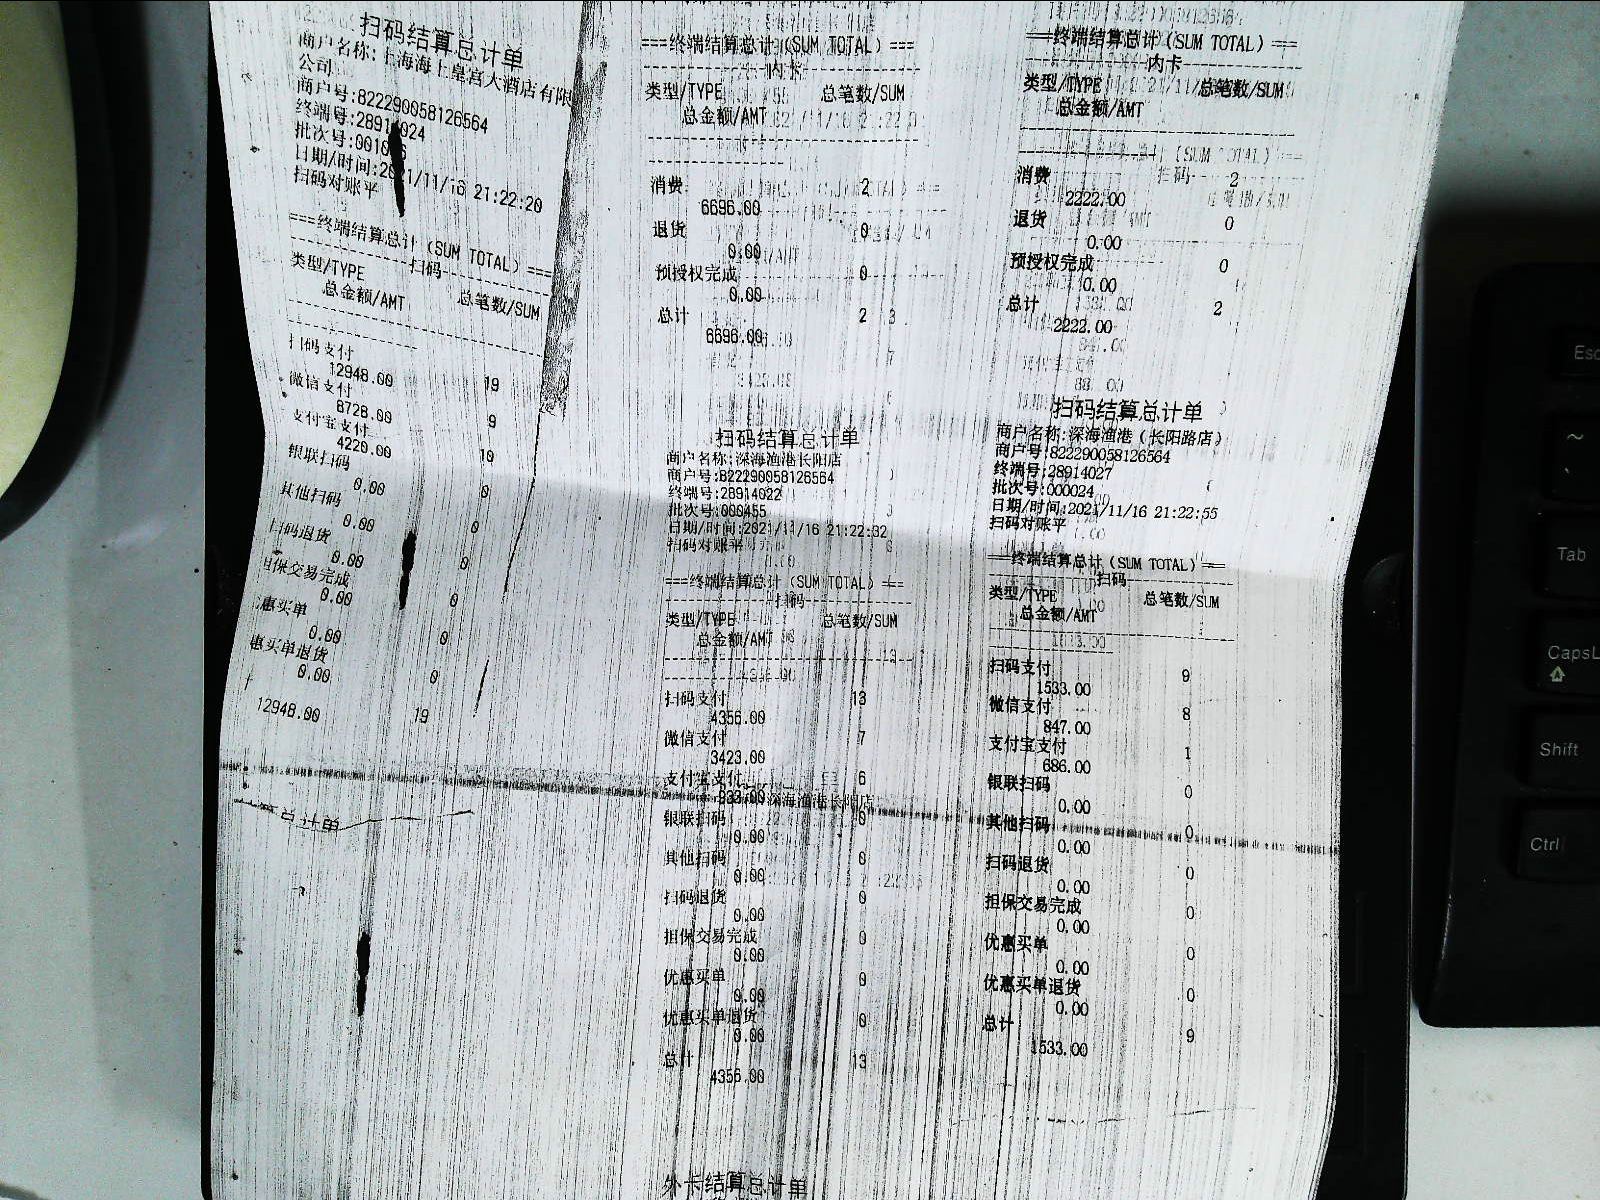 扫码结算总计单
商户名称:上海海上皇宫大酒店有限
公司
商户号:822290058126564
终端号:28914024
日期/时间:2021/11/16 21:22:20
扫码对账平
===终端结算总计(SUM TOTAL)===
扫码
类型/TYPE 总笔数/SUM
总金额/AMT
扫码支付
12948.00 19
微信支付
8728.00 9
支付宝支付
4220.00 10
银联扫码
0.00 0
其他扫码
0.00 0
扫码退货
0.00 0
担保交易完成
0.00 0
惠买单
0.00 0
惠买单退货
0.00 0
12948.00 19
算总计单
===终端结算总计(SUM TOTAL)===
内卡
类型/TYPE 总笔数/SUM
总金额/AMT
消费 2
6696.00
退货 0
0.00
预授权完成 0
0.00
总计 2
6696.00
扫码结算总计单
商户名称:深海渔港长阳店
商户号:822290058126564
终端号:28914022
批次号:000455
日期/时间:2021/11/16 21:22:32
扫码对账平
===终端结算总计(SUM TOTAL)===
扫码
类型/TYPE 总笔数/SUM
总金额/AMT
扫码支付 13
4356.00
微信支付 7
3423.00
支付宝支付 6
933.00
银联扫码 0
0.00
其他扫码 0
0.00
扫码退货 0
0.00
担保交易完成 0
0.00
优惠买单 0
0.00
优惠买单退货 0
0.00
总计 13
4356.00
外卡结算总计单
===终端结算总计(SUM TOTAL)===
内卡
类型/TYPE 总笔数/SUM
总金额/AMT
消费 2
2222.00
退货 0
0.00
预授权完成 0
0.00
总计 2
2222.00
扫码结算总计单
商户名称:深海渔港(长阳路店)
商户号:822290058126564
终端号:28914027
批次号:000024
日期/时间:2021/11/16 21:22:55
扫码对账平
===终端结算总计(SUM TOTAL)===
扫码
类型/TYPE 总笔数/SUM
总金额/AMT
扫码支付 9
1533.00
微信支付 8
847.00
支付宝支付 1
686.00
银联扫码 0
0.00
其他扫码 0
0.00
扫码退货 0
0.00
担保交易完成 0
0.00
优惠买单 0
0.00
优惠买单退货 0
0.00
总计 9
1533.00
Esc
~
Tab
CapsL
Shift
Ctrl